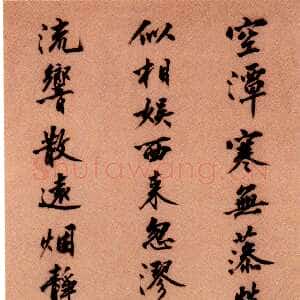 空潭寒無藻
似相娱西来忽漻
流響散遠烟靜
Shufawang.CN